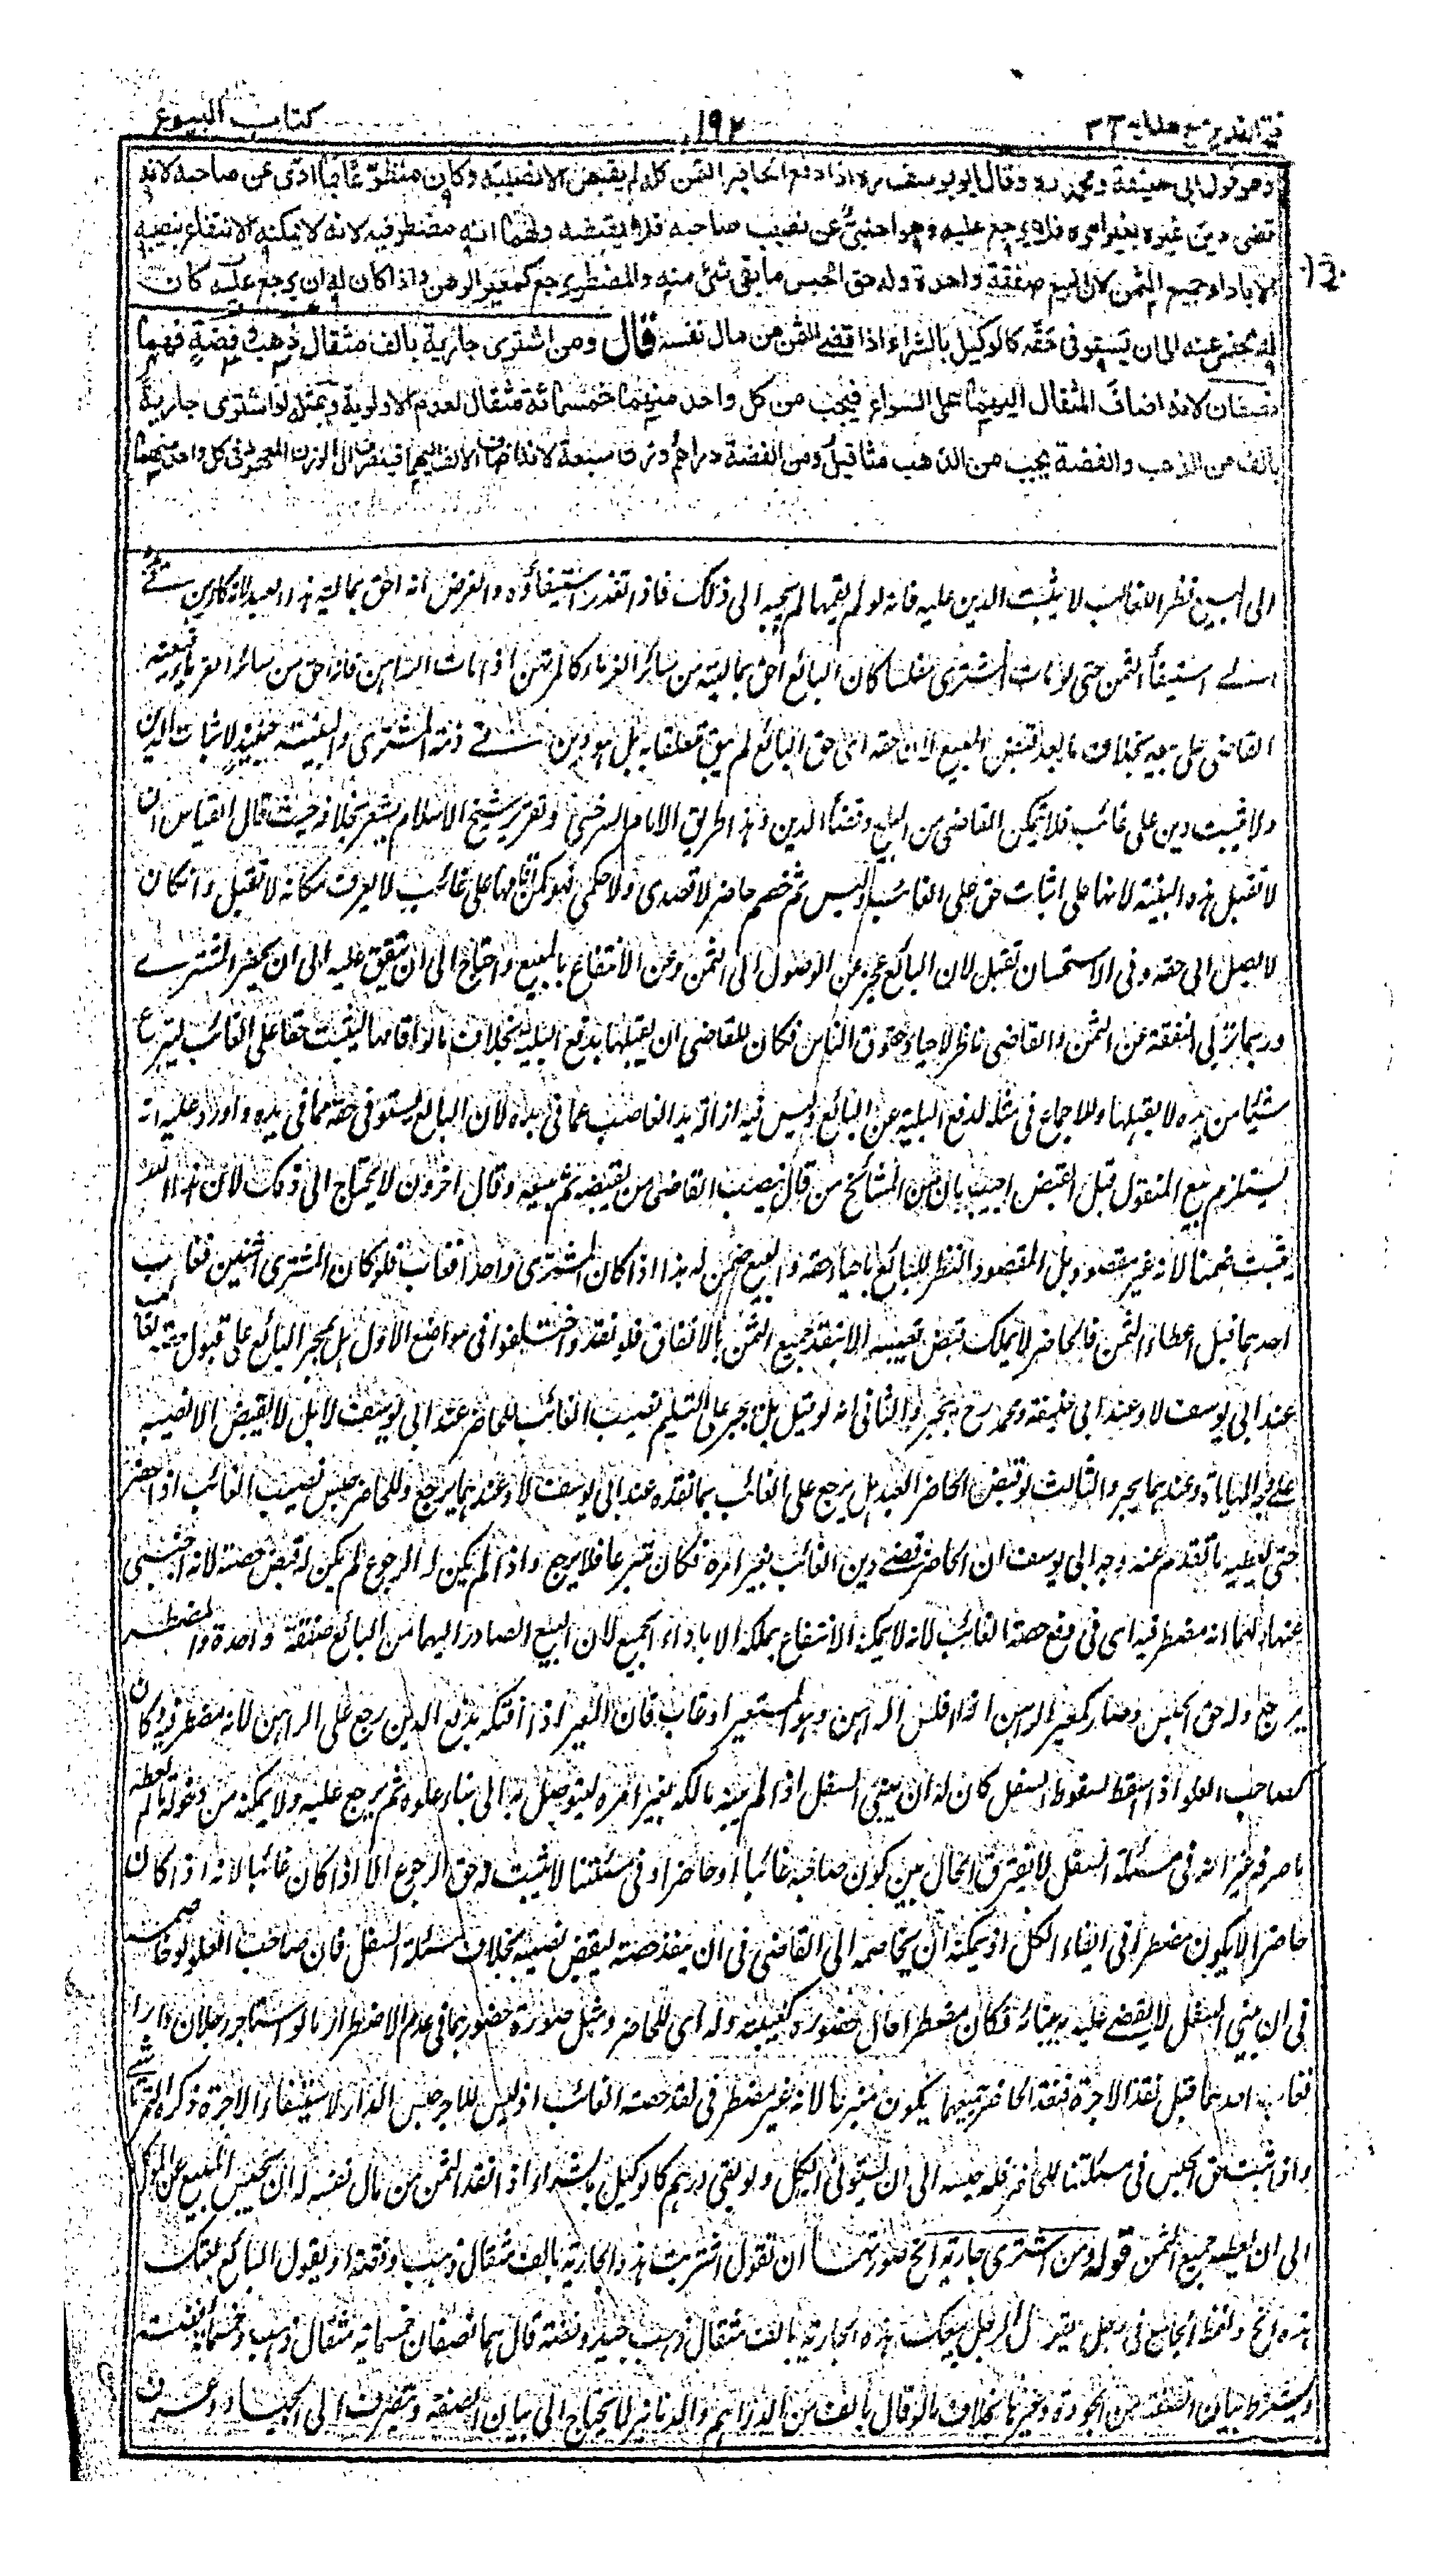 فتح القدير مع هداية ج ٣
١٩٢
كتاب البيوع
وهو قول ابى حنيفة ومحمد رح وقال ابو يوسف رح اذا دفع الحاضر الثمن كله لم يقبض الا نصيبه وكان متطوعا بما ادى عن صاحبه لانه
قضى دين غيره بغير امره فلا يرجع عليه وهو اجنبى عن نصيب صاحبه فلا يقبضه ولهما انه مضطر فيه لانه لا يمكنه الانتفاع بنصيبه
الا باداء جميع الثمن لان البيع صفقة واحدة وله حق الحبس ما بقى شئ منه والمضطر يرجع كمعير الرهن واذا كان له ان يرجع عليه كان
له الحبس عنه الى ان يستوفى حقه كالوكيل بالشراء اذا قضى الثمن من مال نفسه قال ومن اشترى جارية بالف مثقال ذهب وفضة فهما
نصفان لانه اضاف المثقال اليهما على السواء فيجب من كل واحد منهما خمسمائة مثقال لعدم الاولوية وبمثله لو اشترى جارية
بالف من الذهب والفضة يجب من الذهب مثاقيل ومن الفضة دراهم وزن سبعة لانه اضاف الالف اليهما فينصرف الى الوزن المعهود فى كل واحد منهما
الى المبيع نظرا للغائب لا يثبت الدين عليه فانه لو لم يقمها لم يجبه الى ذلك فاذا تعذر استيفاؤه والفرض انه احق بمالية هذا العبد لانه كالرهن فى
استيفاء الثمن حتى لو مات المشترى مفلسا كان البائع احق بماليته من سائر الغرماء كالمرتهن اذا مات الراهن فانه احق من سائر الغرماء فيعينه
القاضى على بيعه بخلاف ما بعد قبض المبيع لان حقه اى حق البائع لم يبق متعلقا به بل هو دين فى ذمة المشترى والبينة حينئذ لاثبات الدين
ولا يثبت دين على غائب فلا يتمكن القاضى من البيع وقضاء الدين هذا طريق الامام السرخسى وتقرير شيخ الاسلام يشعر بخلافه حيث قال القياس ان
لا تقبل هذه البينة لانها على اثبات حق على الغائب وليس ثم خصم حاضر لا قصدى ولا حكمى فهو كمن اقامها على غائب لا يعرف مكانه لا تقبل وان كان
لا يصل الى حقه وفى الاستحسان تقبل لان البائع عجز عن الوصول الى الثمن وعن الانتفاع بالمبيع واحتاج الى ان ينفق عليه الى ان يحضر المشترى
وربما تربى النفقة عن الثمن والقاضى ناظر لاحياء حقوق الناس فكان للقاضى ان يقبلها بدفع البلية بخلاف ما لو اقامها ليثبت حقا على الغائب لينزع
شيئا من يده لا يقبلها وللاجماع فى مثله لدفع البلية عن البائع وليس فيه ازالة يد الغاصب عما فى يده لان البائع يستوفى حقه مما فى يده واورد عليه انه
يستلزم بيع المنقول قبل القبض اجيب بان من المشائخ من قال ينصب القاضى من يقبضه ثم يبيعه وقال اخرون لا يحتاج الى ذلك لان هذا البيع
يثبت ضمنا لانه غير مقصود بل المقصود النظر للبائع باحياء حقه والبيع ضمن له هذا اذا كان المشترى واحدا فغاب فلو كان المشترى اثنين فغاب
احدهما قبل اعطاء الثمن فالحاضر لا يملك قبض نصيبه الا بنقد جميع الثمن بالاتفاق فلو نقده واختلفوا فى مواضع الاول هل يجبر البائع على قبول حصة الغائب
عند ابى يوسف لا وعند ابى حنيفة ومحمد رح يجبر والثانى انه لو قبل هل يجبر على التسليم نصيب الغائب للحاضر عند ابى يوسف لا بل لا يقبض الا نصيبه
على وجه المهاياة وعندهما يجبر والثالث لو قبض الحاضر العبد هل يرجع على الغائب بما نقده عند ابى يوسف لا وعندهما يرجع وللحاضر حبس نصيب الغائب اذا حضر
حتى يعطيه ما نقد عنه وجه ابى يوسف ان الحاضر قضى دين الغائب بغير امره فكان متبرعا فلا يرجع واذا لم يكن له الرجوع لم يكن له قبض حصته لانه اجنبى
عنها ولهما انه مضطر فيه اى فى دفع حصة الغائب لانه لا يمكنه الانتفاع بملكه الا باداء الجميع لان البيع الصادر اليهما من البائع صفقة واحدة والمضطر
يرجع وله حق الحبس وصار كمعير الرهن اذا افلس الراهن وهو المستعير او غاب فان المعير اذا افتكه بدفع الدين رجع على الراهن لانه مضطر فيه وكان
كصاحب العلو اذا سقط لسقوط السفل كان له ان يبنى السفل اذا لم يبنه مالكه بغير امره ليتوصل به الى بناء علوه ثم يرجع عليه ولا يمكنه من دخوله ما لم يعطه
ما صرفه غير انه فى مسئلة السفل لا يفترق الحال بين كون صاحبه غائبا او حاضرا وفى مسئلتنا لا يثبت له حق الرجوع الا اذا كان غائبا لانه اذا كان
حاضرا لا يكون مضطرا فى ايفاء الكل اذ يمكنه ان يخاصمه الى القاضى فى ان ينقد حصته ليقبض نصيبه بخلاف مسئلة السفل فان صاحب العلو لو خاصمه
فى ان يبنى السفل لا يقضى عليه ببنائه فكان مضطرا حال حضوره كغيبته وله اى للحاضر ومثل صورة حضورهما فى عدم الاضطرار ما لو استاجر رجلان دارا
فغاب احدهما قبل نقد الاجرة فنقد الحاضر جميعها يكون متبرعا لانه غير مضطر فى نقد حصة الغائب اذ ليس للآجر حبس الدار لاستيفاء الاجرة ذكره التمرتاشى
واذا ثبت حق الحبس فى مسئلتنا للحاضر فله حبسه الى ان يستوفى الكل ولو بقى درهم كالوكيل بالشراء اذا نقد الثمن من مال نفسه له ان يحبس المبيع عن الموكل
الى ان يعطيه جميع الثمن قوله ومن اشترى جارية الخ صورتها ان تقول اشتريت هذه الجارية بالف مثقال ذهب وفضة او يقول البائع بعتك
هذه الخ ولفظ الجامع فى رجل يقول لرجل بيعك هذه الجارية بالف مثقال ذهب جيد وفضة قال هما نصفان خمسمائة مثقال ذهب وخمسمائة فضة
ويشترط بيان الصفة من الجودة وغيرها بخلاف ما لو قال بالف من الدراهم والدنانير لا يحتاج الى بيان الصفة وينصرف الى الجياد